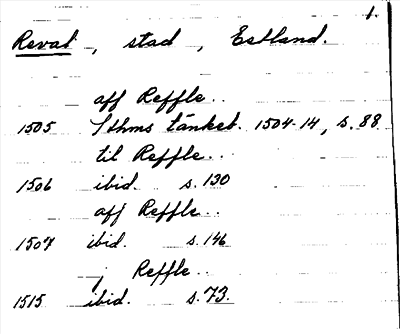 1.
Reval, stad, Estland.
aff Reffle..
1505 Sthms tänkeb. 1504-14, s. 88
til Reffle..
1506 ibid. s. 130
aff Reffle..
1507 ibid. s. 146
j Reffle..
1515 ibid. s. 73.